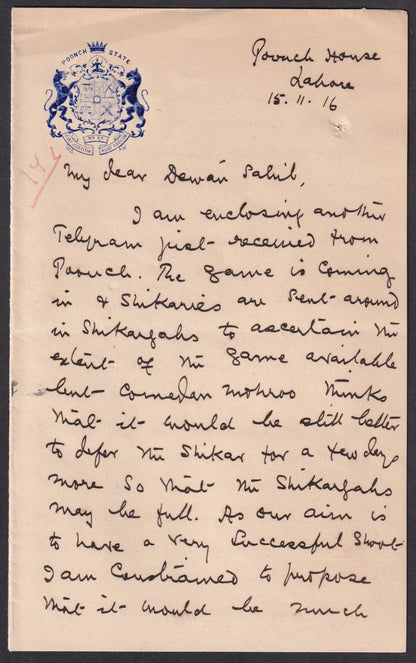 POONCH STATE
Poonch House
Lahore
15.11.16
My dear Dewan Sahib,
I am enclosing another
Telegram just received from
Poonch. The game is coming
in & Shikaries are sent around
in Shikargahs to ascertain the
extent of the game available
but thinks
that it would be still better
to defer the Shikar for a few days
more so that the Shikargahs
may be full. As our aim is
to have a very successful Shoot
I am constrained to propose
that it would be much